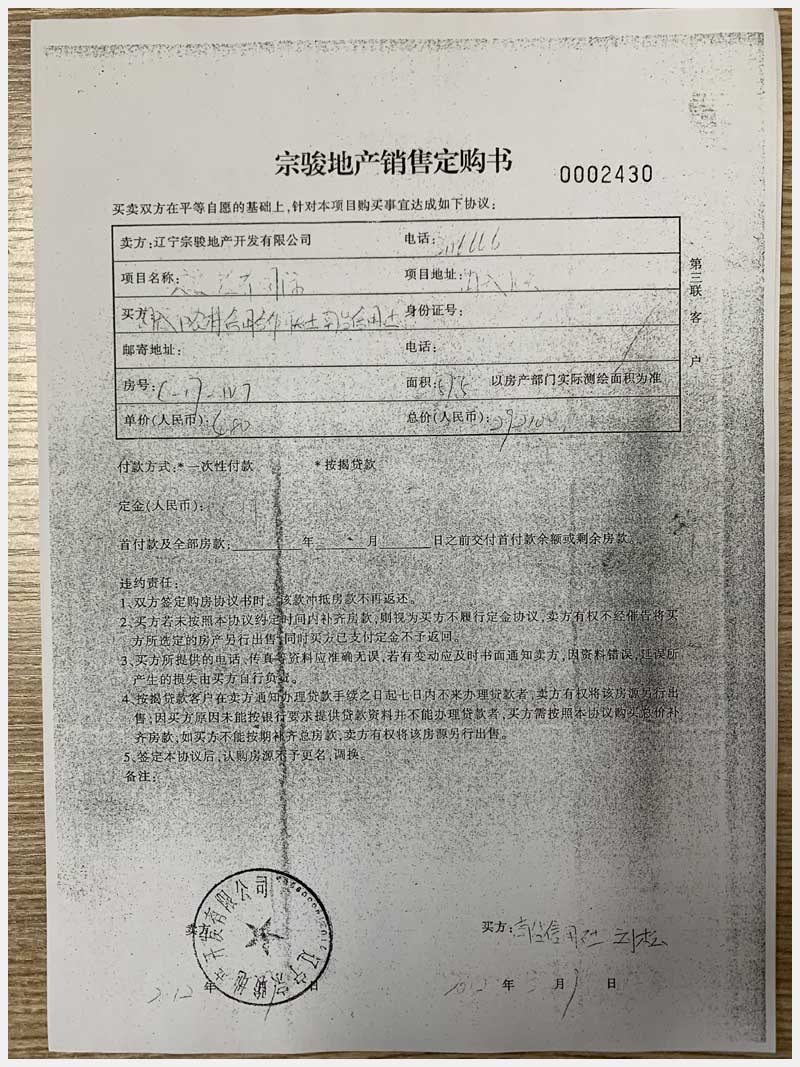 宗骏地产销售定购书
0002430
买卖双方在平等自愿的基础上,针对本项目购买事宜达成如下协议:
卖方:辽宁宗骏地产开发有限公司 电话:
项目名称: 项目地址:
买方: 身份证号:
邮寄地址: 电话:
房号: 面积: 以房产部门实际测绘面积为准
单价(人民币): 480 总价(人民币):
第三联 客户
付款方式:*一次性付款 *按揭贷款
定金(人民币):
首付款及全部房款: 年 月 日之前交付首付款余额或剩余房款。
违约责任:
1、双方签定购房协议书时,该款冲抵房款不再返还。
2、买方若未按照本协议约定时间内补齐房款,则视为买方不履行定金协议,卖方有权不经催告将买
方所选定的房产另行出售,同时买方已支付定金不予返回。
3、买方所提供的电话、传真等资料应准确无误,若有变动应及时书面通知卖方,因资料错误、延误所
产生的损失由买方自行负责。
4、按揭贷款客户在卖方通知办理贷款手续之日起七日内不来办理贷款者,卖方有权将该房源另行出
售;因买方原因未能按银行要求提供贷款资料并不能办理贷款者,买方需按照本协议购买总价补
齐房款,如买方不能按期补齐总房款,卖方有权将该房源另行出售。
5、签定本协议后,认购房源不予更名,调换。
备注:
卖方: 买方: 信用社
辽宁宗骏地产开发有限公司
年 日 2012 年 月 日